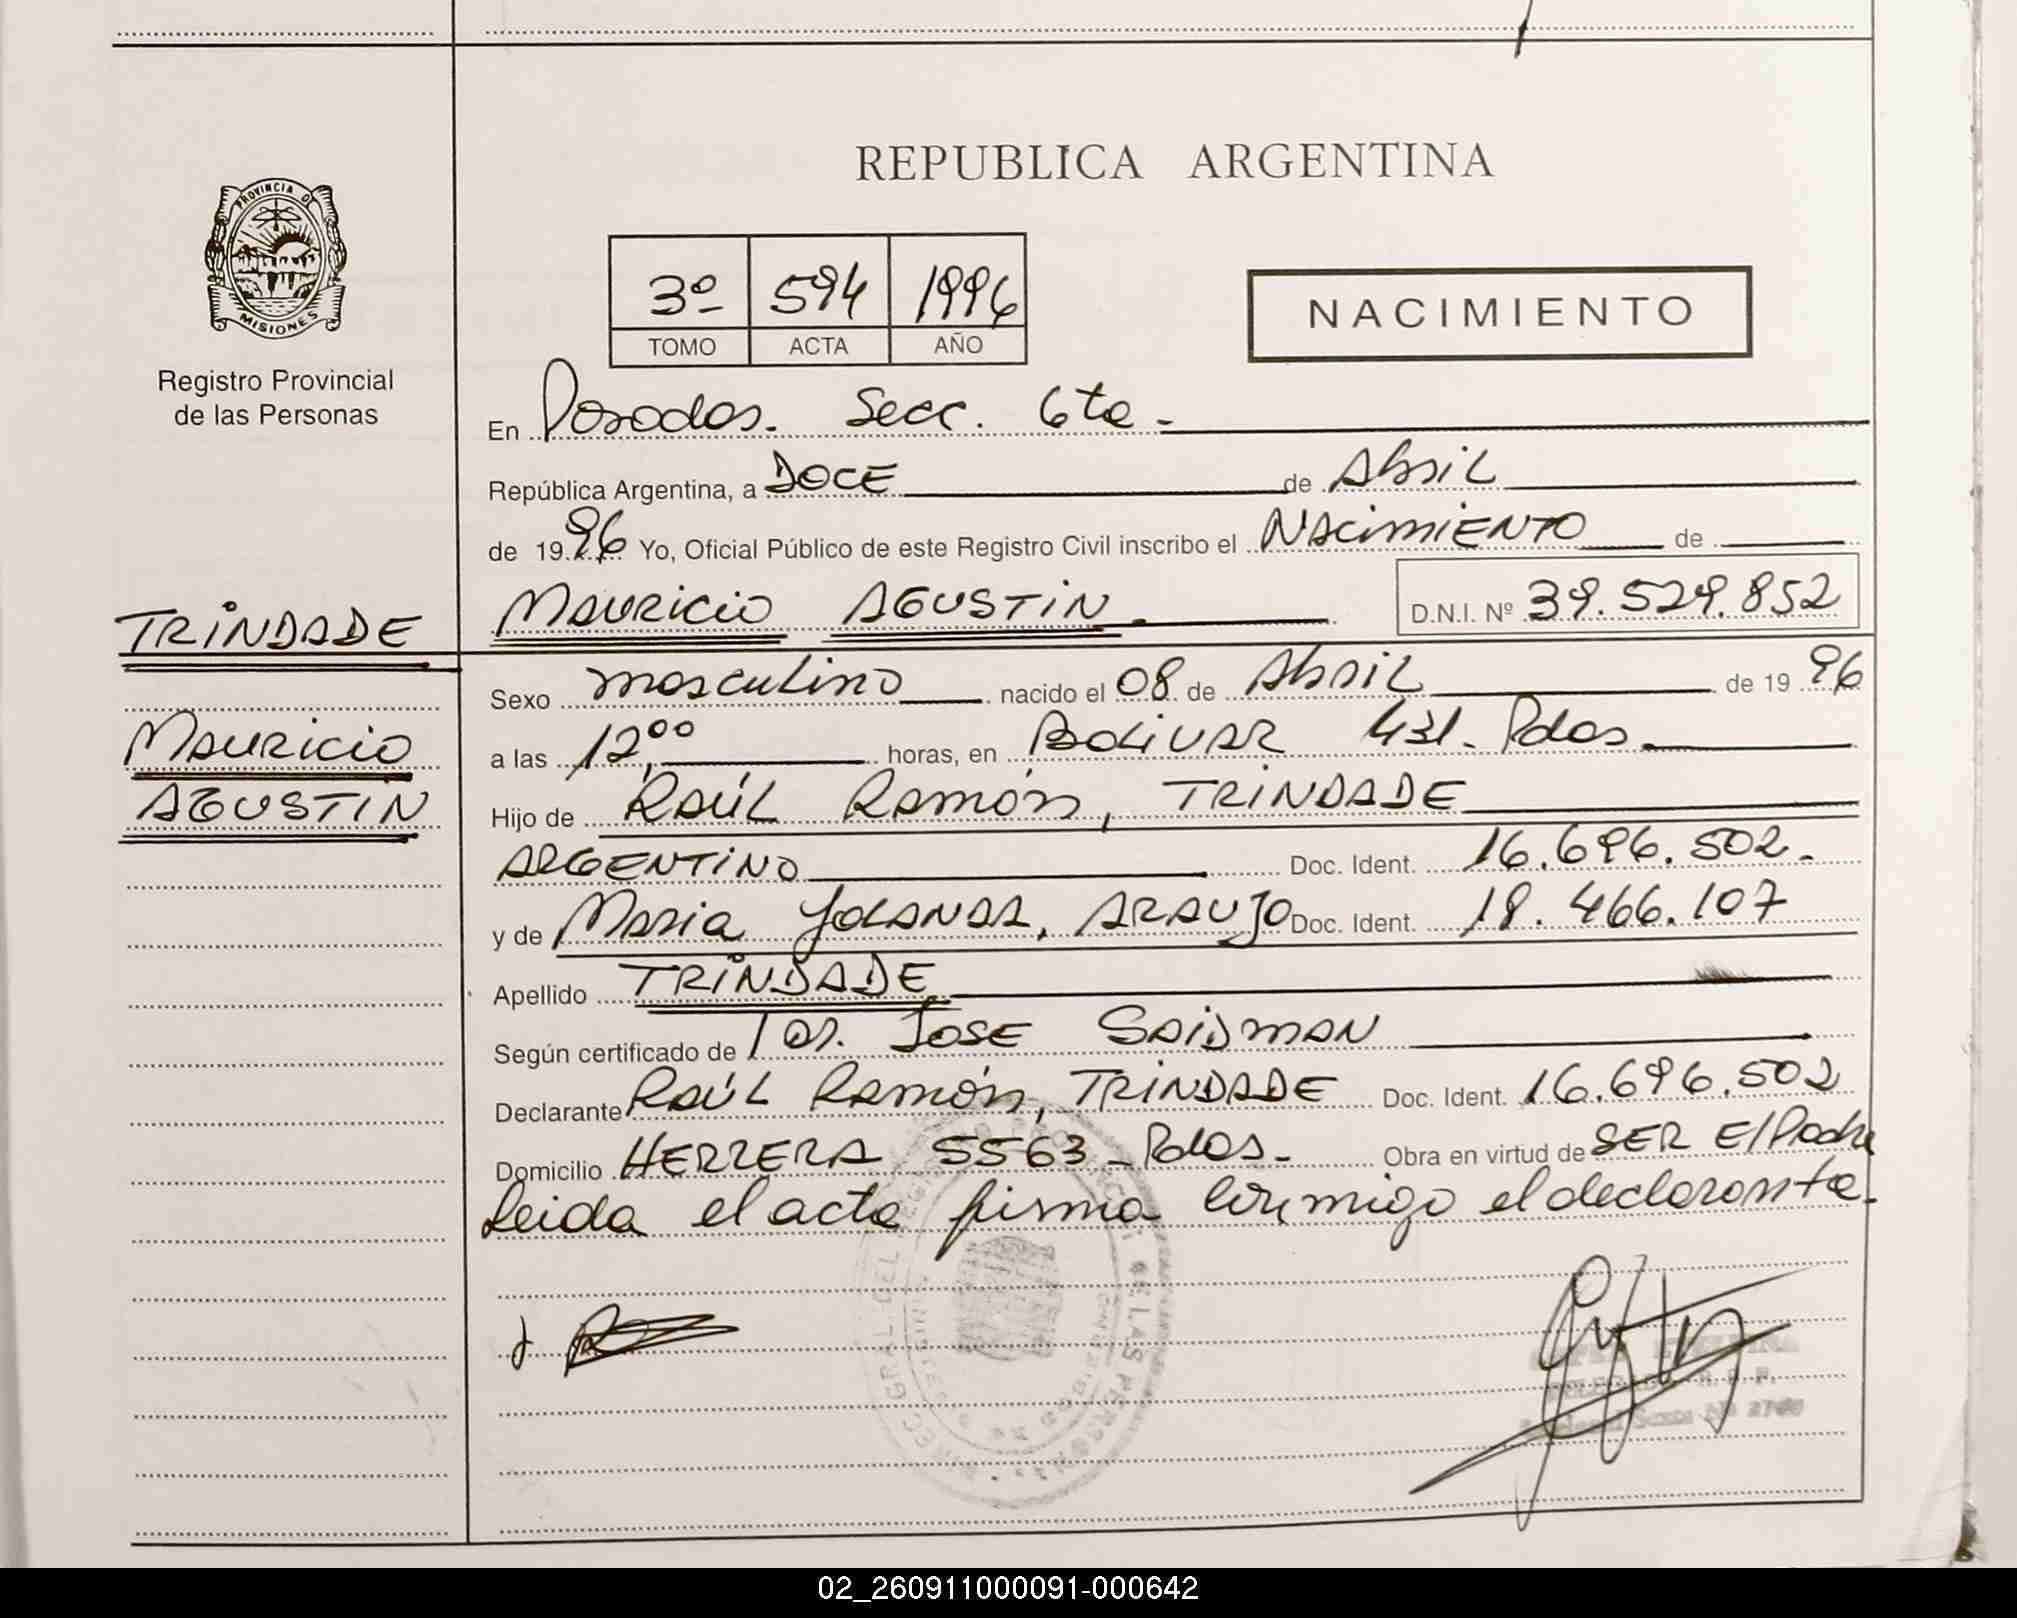 REPUBLICA ARGENTINA
PROVINCIA D
MISIONES
Registro Provincial
de las Personas
3º 594 1996
TOMO ACTA AÑO
NACIMIENTO
En Posadas. Secc. 6ta -
República Argentina, a DOCE de Abril
de 1996 Yo, Oficial Público de este Registro Civil inscribo el NACIMIENTO de
TRINDADE
MAURICIO AGUSTIN. D.N.I. Nº 39.529.852
Sexo masculino nacido el 08 de Abril de 1996
MAURICIO
AGUSTIN
a las 12,00 horas, en BOLIVAR 431. Pdas.
Hijo de RAÚL RAMÓN, TRINDADE
ARGENTINO Doc. Ident. 16.696.502.
y de Maria YOLANDA, ARAUJO Doc. Ident. 18.466.107
Apellido TRINDADE
Según certificado de JOSE SAIDMAN
Declarante RAÚL RAMÓN, TRINDADE Doc. Ident. 16.696.502
Domicilio HERRERA 5563 - Pdas. Obra en virtud de SER El Padre
Leida el acta firma conmigo el declarante.
02_260911000091-000642